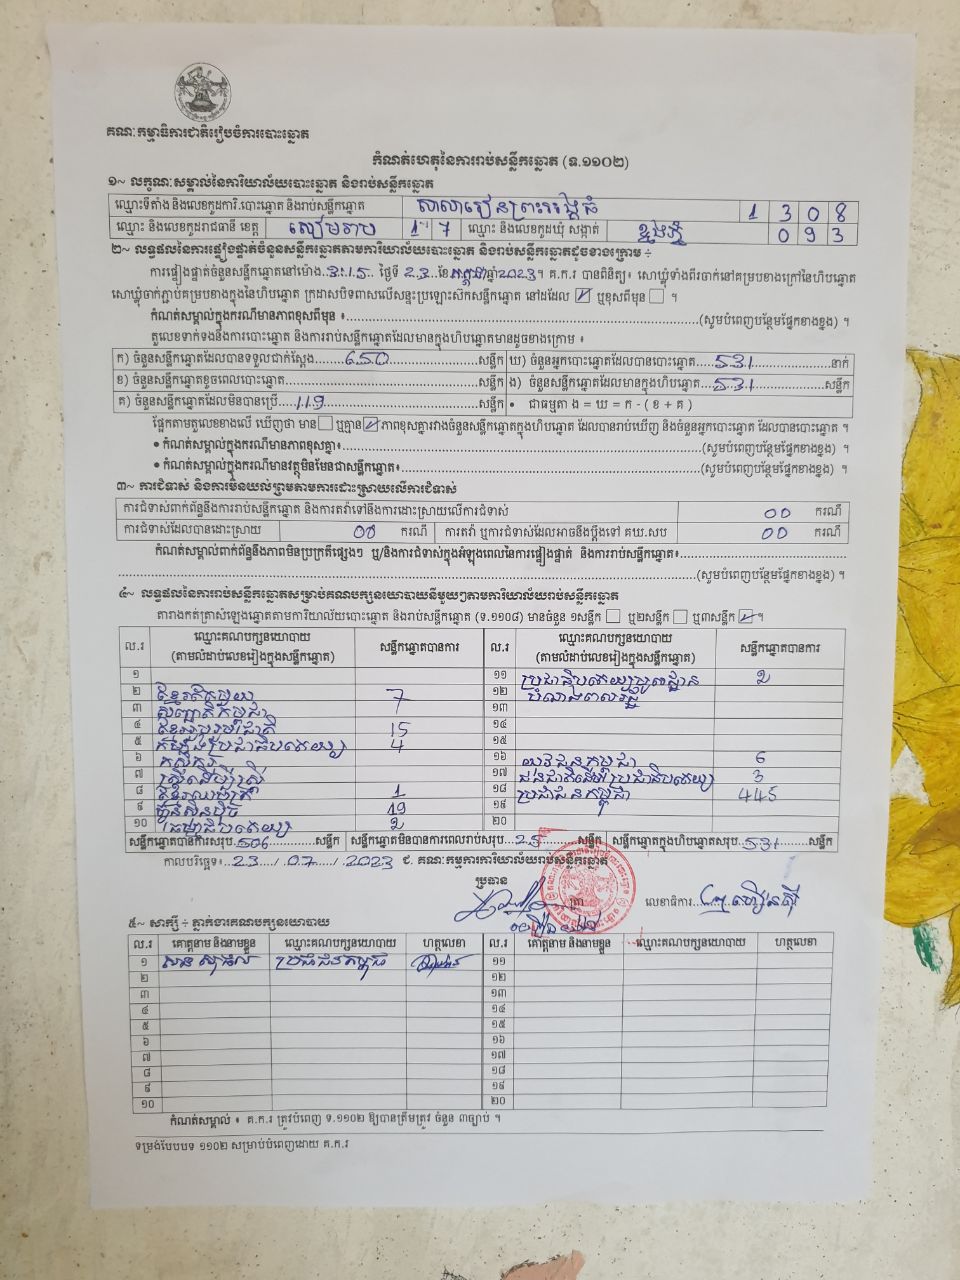 គណៈកម្មាធិការជាតិរៀបចំការបោះឆ្នោត
កំណត់ហេតុនៃការរាប់សន្លឹកឆ្នោត (ទ.១១០២)
១~ លក្ខណៈសម្គាល់នៃការិយាល័យបោះឆ្នោត និងរាប់សន្លឹកឆ្នោត
ឈ្មោះទីតាំង និងលេខកូដការិ.បោះឆ្នោត និងរាប់សន្លឹកឆ្នោត សាលារៀនព្រះអង្គធំ 1 3 0 8
ឈ្មោះ និងលេខកូដរាជធានី ខេត្ត សៀមរាប 1 7 ឈ្មោះ និងលេខកូដឃុំ សង្កាត់ ខ្នងភ្នំ 0 9 3
២~ លទ្ធផលនៃការផ្ទៀងផ្ទាត់ចំនួនសន្លឹកឆ្នោតតាមការិយាល័យបោះឆ្នោត និងរាប់សន្លឹកឆ្នោតដូចខាងក្រោម ÷
ការផ្ទៀងផ្ទាត់ចំនួនសន្លឹកឆ្នោតនៅម៉ោង 3:15 ថ្ងៃទី 23 ខែ កក្កដា ឆ្នាំ 2023។ គ.ក.រ បានពិនិត្យ៖ សោឃ្លុំទាំងពីរចាក់នៅគម្របខាងក្រៅនៃហិបឆ្នោត
សោឃ្លុំចាក់ភ្ជាប់គម្របខាងក្នុងនៃហិបឆ្នោត ក្រដាសបិទពាសលើសន្ទះប្រឡោះស៊កសន្លឹកឆ្នោត នៅដដែល ☑ ឬខុសពីមុន ☐ ។
កំណត់សម្គាល់ក្នុងករណីមានភាពខុសពីមុន ៖ (សូមបំពេញបន្ថែមផ្នែកខាងខ្នង) ។
តួលេខទាក់ទងនឹងការបោះឆ្នោត និងការរាប់សន្លឹកឆ្នោតដែលមានក្នុងហិបឆ្នោតមានដូចខាងក្រោម ៖
ក) ចំនួនសន្លឹកឆ្នោតដែលបានទទួលជាក់ស្តែង 650 សន្លឹក ឃ) ចំនួនអ្នកបោះឆ្នោតដែលបានបោះឆ្នោត 531 នាក់
ខ) ចំនួនសន្លឹកឆ្នោតខូចពេលបោះឆ្នោត សន្លឹក ង) ចំនួនសន្លឹកឆ្នោតដែលមានក្នុងហិបឆ្នោត 531 សន្លឹក
គ) ចំនួនសន្លឹកឆ្នោតដែលមិនបានប្រើ 119 សន្លឹក • ជាធម្មតា ង = ឃ = ក - ( ខ + គ )
ផ្អែកតាមតួលេខខាងលើ ឃើញថា មាន ☐ ឬគ្មាន ☑ ភាពខុសគ្នារវាងចំនួនសន្លឹកឆ្នោតក្នុងហិបឆ្នោត ដែលបានរាប់ឃើញ និងចំនួនអ្នកបោះឆ្នោត ដែលបានបោះឆ្នោត ។
• កំណត់សម្គាល់ក្នុងករណីមានភាពខុសគ្នា៖ (សូមបំពេញបន្ថែមផ្នែកខាងខ្នង) ។
• កំណត់សម្គាល់ក្នុងករណីមានវត្ថុមិនមែនជាសន្លឹកឆ្នោត៖ (សូមបំពេញបន្ថែមផ្នែកខាងខ្នង) ។
៣~ ការជំទាស់ និងការមិនយល់ព្រមតាមការដោះស្រាយលើការជំទាស់
ការជំទាស់ពាក់ព័ន្ធនឹងការរាប់សន្លឹកឆ្នោត និងការតវ៉ាទៅនឹងការដោះស្រាយលើការជំទាស់ 00 ករណី
ការជំទាស់ដែលបានដោះស្រាយ 00 ករណី ការតវ៉ា ឬការជំទាស់ដែលអាចនឹងប្តឹងទៅ គឃ.សប 00 ករណី
កំណត់សម្គាល់ពាក់ព័ន្ធនឹងភាពមិនប្រក្រតីផ្សេងៗ ឬ/និងការជំទាស់ក្នុងអំឡុងពេលនៃការផ្ទៀងផ្ទាត់ និងការរាប់សន្លឹកឆ្នោត៖
(សូមបំពេញបន្ថែមផ្នែកខាងខ្នង) ។
៤~ លទ្ធផលនៃការរាប់សន្លឹកឆ្នោតសម្រាប់គណបក្សនយោបាយនីមួយៗតាមការិយាល័យរាប់សន្លឹកឆ្នោត
តារាងកត់ត្រាសំឡេងឆ្នោតតាមការិយាល័យបោះឆ្នោត និងរាប់សន្លឹកឆ្នោត (ទ.១១០៨) មានចំនួន ១សន្លឹក ☐ ឬ២សន្លឹក ☐ ឬ៣សន្លឹក ☑ ។
ល.រ ឈ្មោះគណបក្សនយោបាយ (តាមលំដាប់លេខរៀងក្នុងសន្លឹកឆ្នោត) សន្លឹកឆ្នោតបានការ ល.រ ឈ្មោះគណបក្សនយោបាយ (តាមលំដាប់លេខរៀងក្នុងសន្លឹកឆ្នោត) សន្លឹកឆ្នោតបានការ
១ ១១ ប្រជាធិបតេយ្យមូលដ្ឋាន 2
២ ខ្មែរតែមួយ 7 ១២
៣ សញ្ជាតិកម្ពុជា ១៣
៤ ខ្មែររួបរួមជាតិ 15 ១៤
៥ កម្លាំងប្រជាធិបតេយ្យ 4 ១៥
៦ កសិករ ១៦ យុវជនកម្ពុជា 6
៧ ស្ត្រីដើម្បីស្ត្រី ១៧ ជនជាតិដើមប្រជាធិបតេយ្យ 3
៨ 1 ១៨ ប្រជាជនកម្ពុជា 445
៩ ហ្វ៊ុនស៊ិនប៉ិច 19 ១៩
១០ ធម្មាធិបតេយ្យ 2 ២០
សន្លឹកឆ្នោតបានការសរុប 506 សន្លឹក សន្លឹកឆ្នោតមិនបានការពេលរាប់សរុប 25 សន្លឹក សន្លឹកឆ្នោតក្នុងហិបឆ្នោតសរុប 531 សន្លឹក
កាលបរិច្ឆេទ៖ 23 / 07 / 2023 ជ. គណៈកម្មការការិយាល័យរាប់សន្លឹកឆ្នោត
ប្រធាន
លេខាធិការ
៥~ សាក្សី ÷ ភ្នាក់ងារគណបក្សនយោបាយ
ល.រ គោត្តនាម និងនាមខ្លួន ឈ្មោះគណបក្សនយោបាយ ហត្ថលេខា ល.រ គោត្តនាម និងនាមខ្លួន ឈ្មោះគណបក្សនយោបាយ ហត្ថលេខា
១ ប្រជាជនកម្ពុជា ១១
២ ១២
៣ ១៣
៤ ១៤
៥ ១៥
៦ ១៦
៧ ១៧
៨ ១៨
៩ ១៩
១០ ២០
កំណត់សម្គាល់ ៖ គ.ក.រ ត្រូវបំពេញ ទ.១១០២ ឱ្យបានត្រឹមត្រូវ ចំនួន ៣ច្បាប់ ។
ទម្រង់បែបបទ ១១០២ សម្រាប់បំពេញដោយ គ.ក.រ